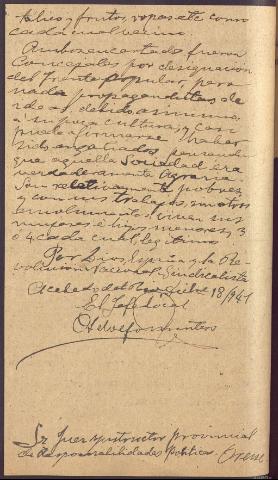 blico y frutos, ropas etc como
cada cual vecino.
Ambos encartados fueron
Concejales por designación
del Frente popular, pero
nada propagandistas de
ideas, debido a su misma
incultura y
puede afirmarse haber
sido engañados pensando
que aquella Sociedad era
verdaderamente Agraria
Son relativamente pobres
y con sus trabajos, sin otros
emolumentos viven sus
mujeres e hijos menores, 3
ó 4 cada cual, legítimos
Por Dios, España y la Re-
volución Nacional Sindicalista
Acebedo del Rio Julio 18/941
El Jefe local
Sr Juez instructor provincial
de Responsabilidades Políticas. Orense